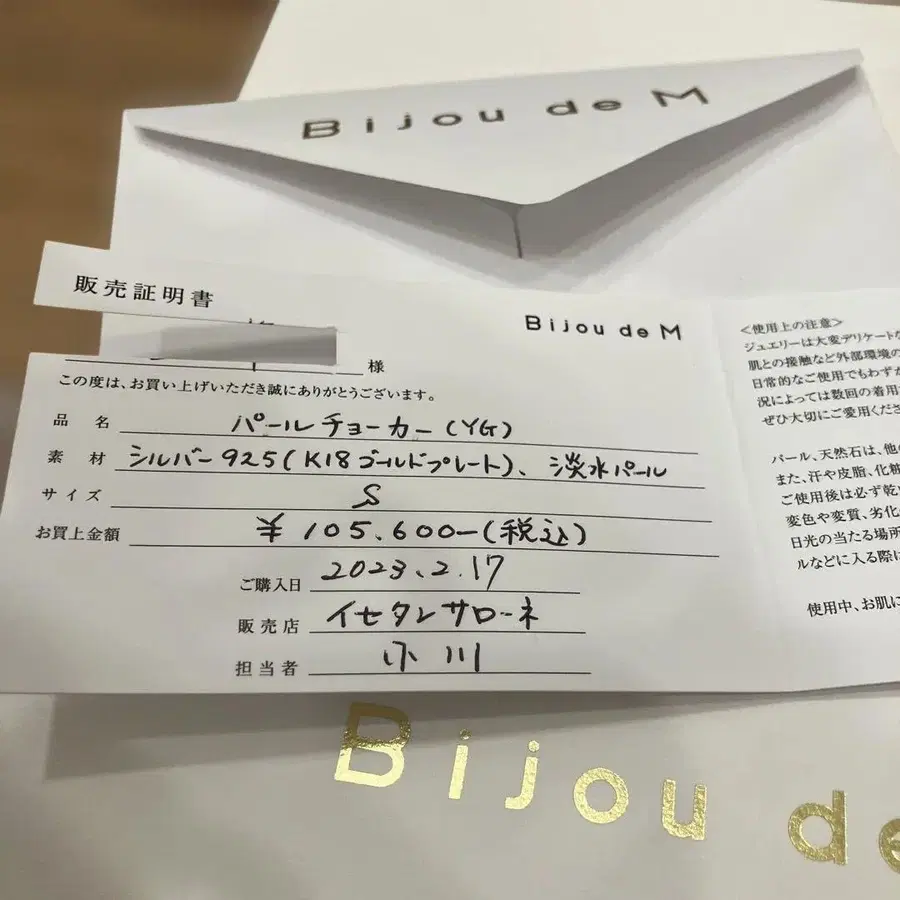 Bijou de M
販売証明書
Bijou de M
様
この度は、お買い上げいただき誠にありがとうございます。
品名 パールチョーカー(YG)
素材 シルバー925(K18ゴールドプレート)、淡水パール
サイズ S
お買上金額 ¥105.600-(税込)
ご購入日 2023.2.17
販売店 イセタンサローネ
担当者 小川
<使用上の注意>
ジュエリーは大変デリケートな
肌との接触など外部環境の
日常的なご使用でもわずか
況によっては数回の着用
ぜひ大切にご愛用くださ
パール、天然石は、他の
また、汗や皮脂、化粧
ご使用後は必ず乾い
変色や変質、劣化
日光の当たる場所
ルなどに入る際に
使用中、お肌に
Bijou de